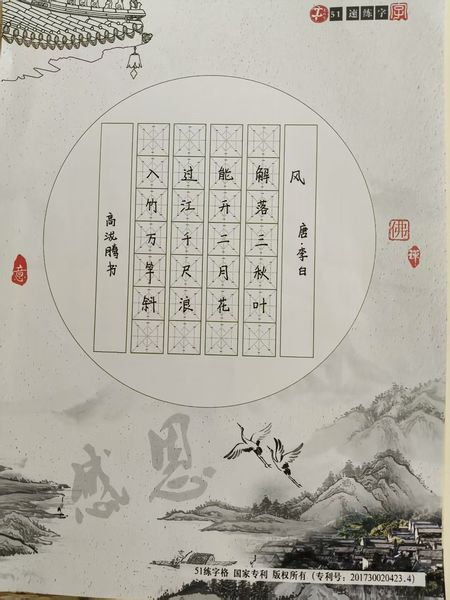 51速练字
风
唐·李白
解落三秋叶
能开二月花
过江千尺浪
入竹万竿斜
佛
意
感恩
51练字格 国家专利 版权所有（专利号：201730020423.4）